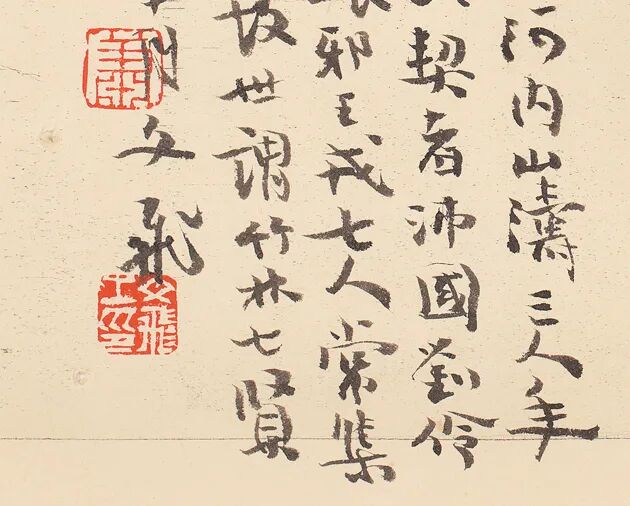 河內山濤三人年
契者沛國劉伶
邪王戎七人常集
故世謂竹林七賢
月文飛